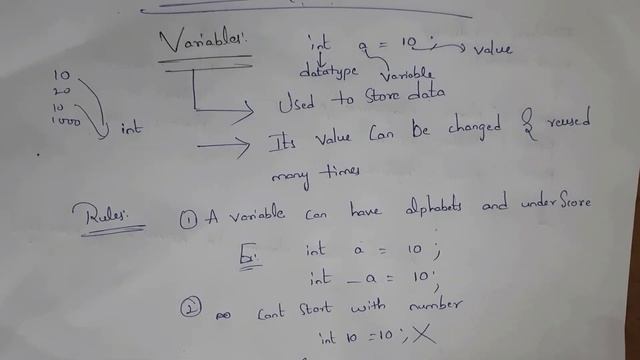 Variables:
int a = 10 ; → value
datatype variable
10
20
10
1000 int
→ Used to Store data
→ Its value can be changed & reused
many times
Rules:
① A variable can have alphabets and underscore
Ex: int a = 10 ;
int _a = 10 ;
② Cant Start with number
int 10 = 10 ; X